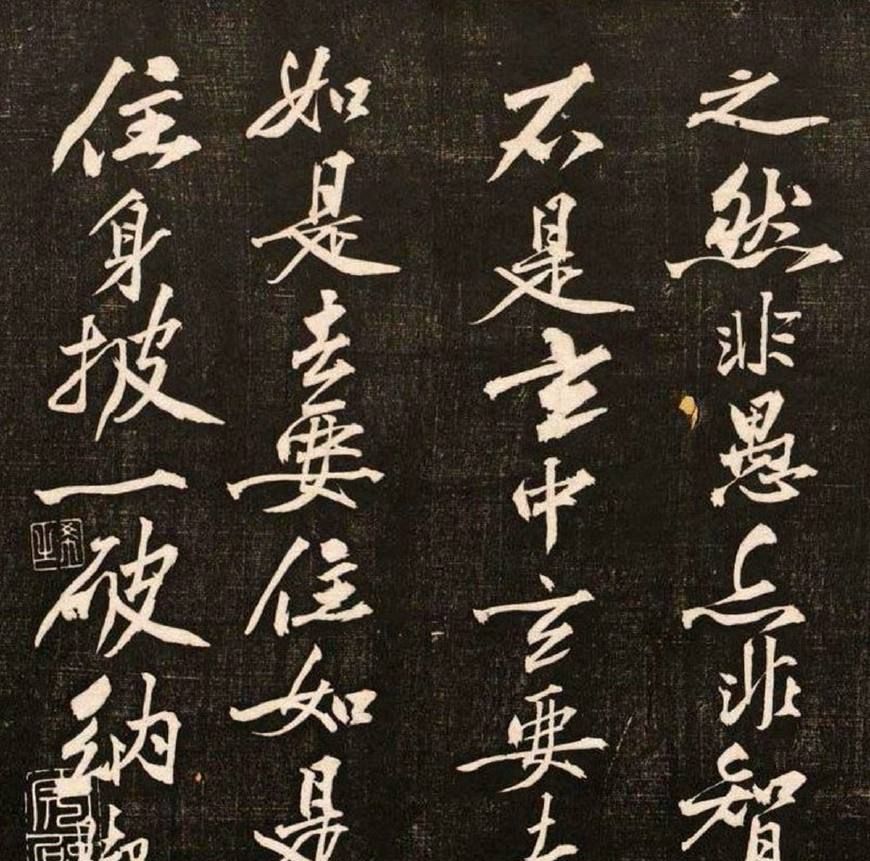 之然非愚亦非智
不是玄中玄要去
如是去要住如是
住身披一破衲